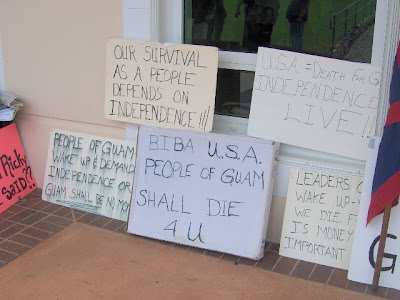 OUR SURVIVAL
AS A PEOPLE
DEPENDS ON
INDEPENDENCE!!!
U.S.A. = Death For G
INDEPENDENCE
LIVE!!!
PEOPLE OF GUAM
WAKE UP & DEMAND
INDEPENDENCE OR
GUAM SHALL BE NO MO
BIBA U.S.A.
PEOPLE OF GUAM
SHALL DIE
4 U
LEADERS O
WAKE UP-
WE DIE F
IS MONEY
IMPORTANT
Ricky
said??
G